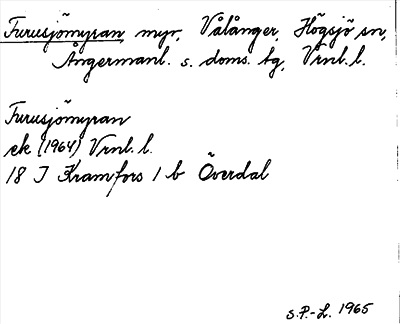 Furusjömyran myr, Vålånger, Högsjö sn,
Ångermanl. s. doms. bg, Vrnl. l.
Furusjömyran
ek (1964) Vrnl. l.
18 J Kramfors 1 b Överdal
S.P.-L. 1965